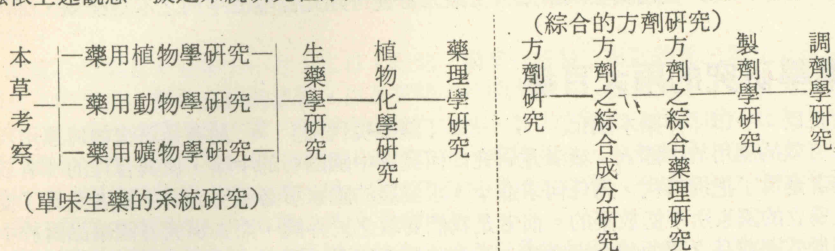 (綜合的方劑研究)
本草考察
藥用植物學研究
藥用動物學研究
藥用礦物學研究
生藥學研究
植物化學研究
藥理學研究
方劑研究
方劑之綜合成分研究
方劑之綜合藥理研究
製劑學研究
調劑學研究
(單味生藥的系統研究)